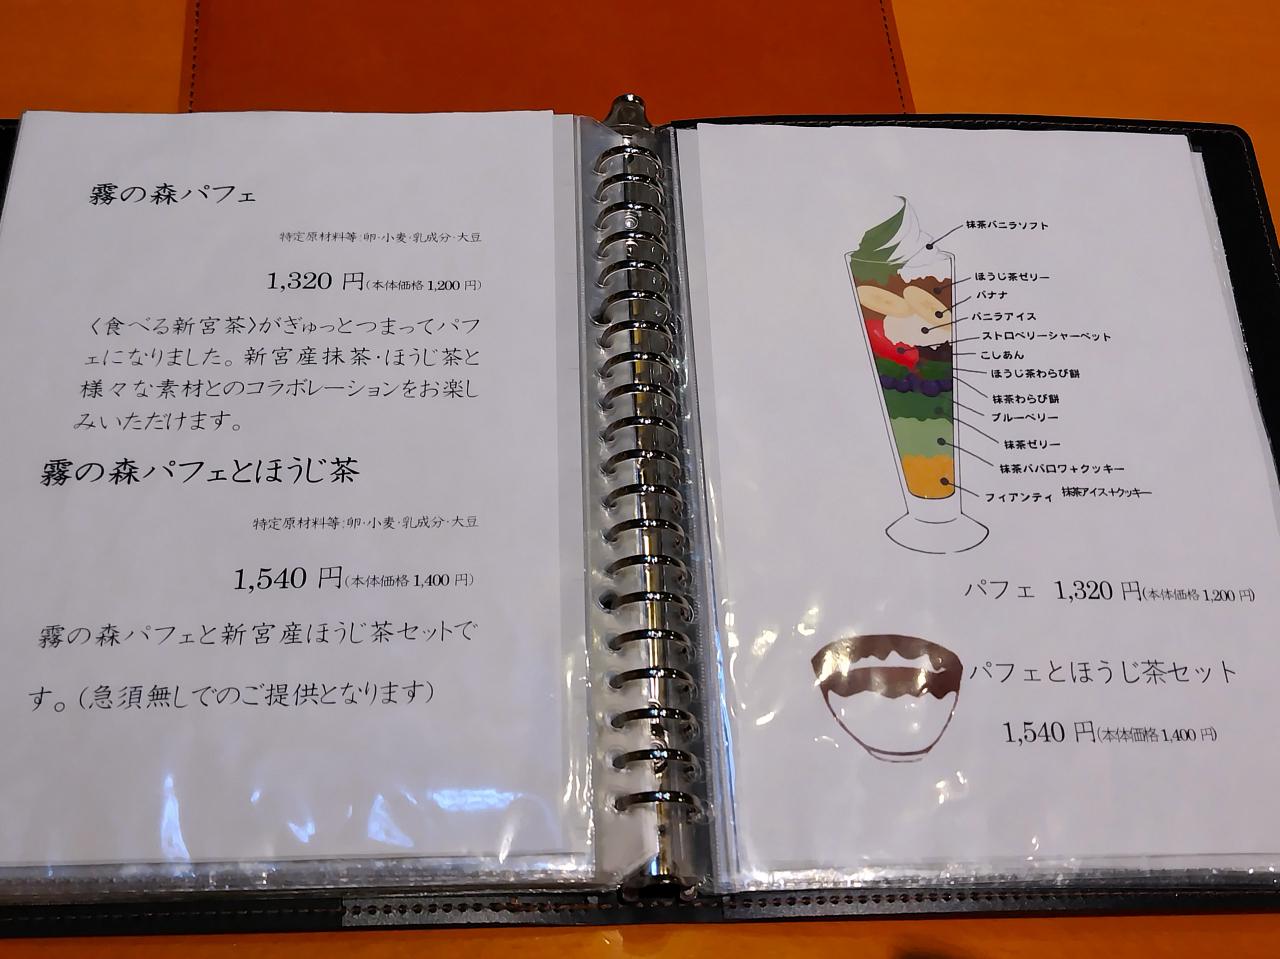 霧の森パフェ
特定原材料等:卵·小麦·乳成分·大豆
1,320 円(本体価格 1,200 円)
〈食べる新宮茶〉がぎゅっとつまってパフ
ェになりました。新宮産抹茶·ほうじ茶と
様々な素材とのコラボレーションをお楽し
みいただけます。
霧の森パフェとほうじ茶
特定原材料等:卵·小麦·乳成分·大豆
1,540 円(本体価格 1,400 円)
霧の森パフェと新宮産ほうじ茶セットで
す。(急須無しでのご提供となります)
抹茶バニラソフト
ほうじ茶ゼリー
バナナ
バニラアイス
ストロベリーシャーベット
こしあん
ほうじ茶わらび餅
抹茶わらび餅
ブルーベリー
抹茶ゼリー
抹茶ババロワ+クッキー
フィアンティ 抹茶アイス+クッキー
パフェ 1,320 円(本体価格 1,200 円)
パフェとほうじ茶セット
1,540 円(本体価格 1,400 円)